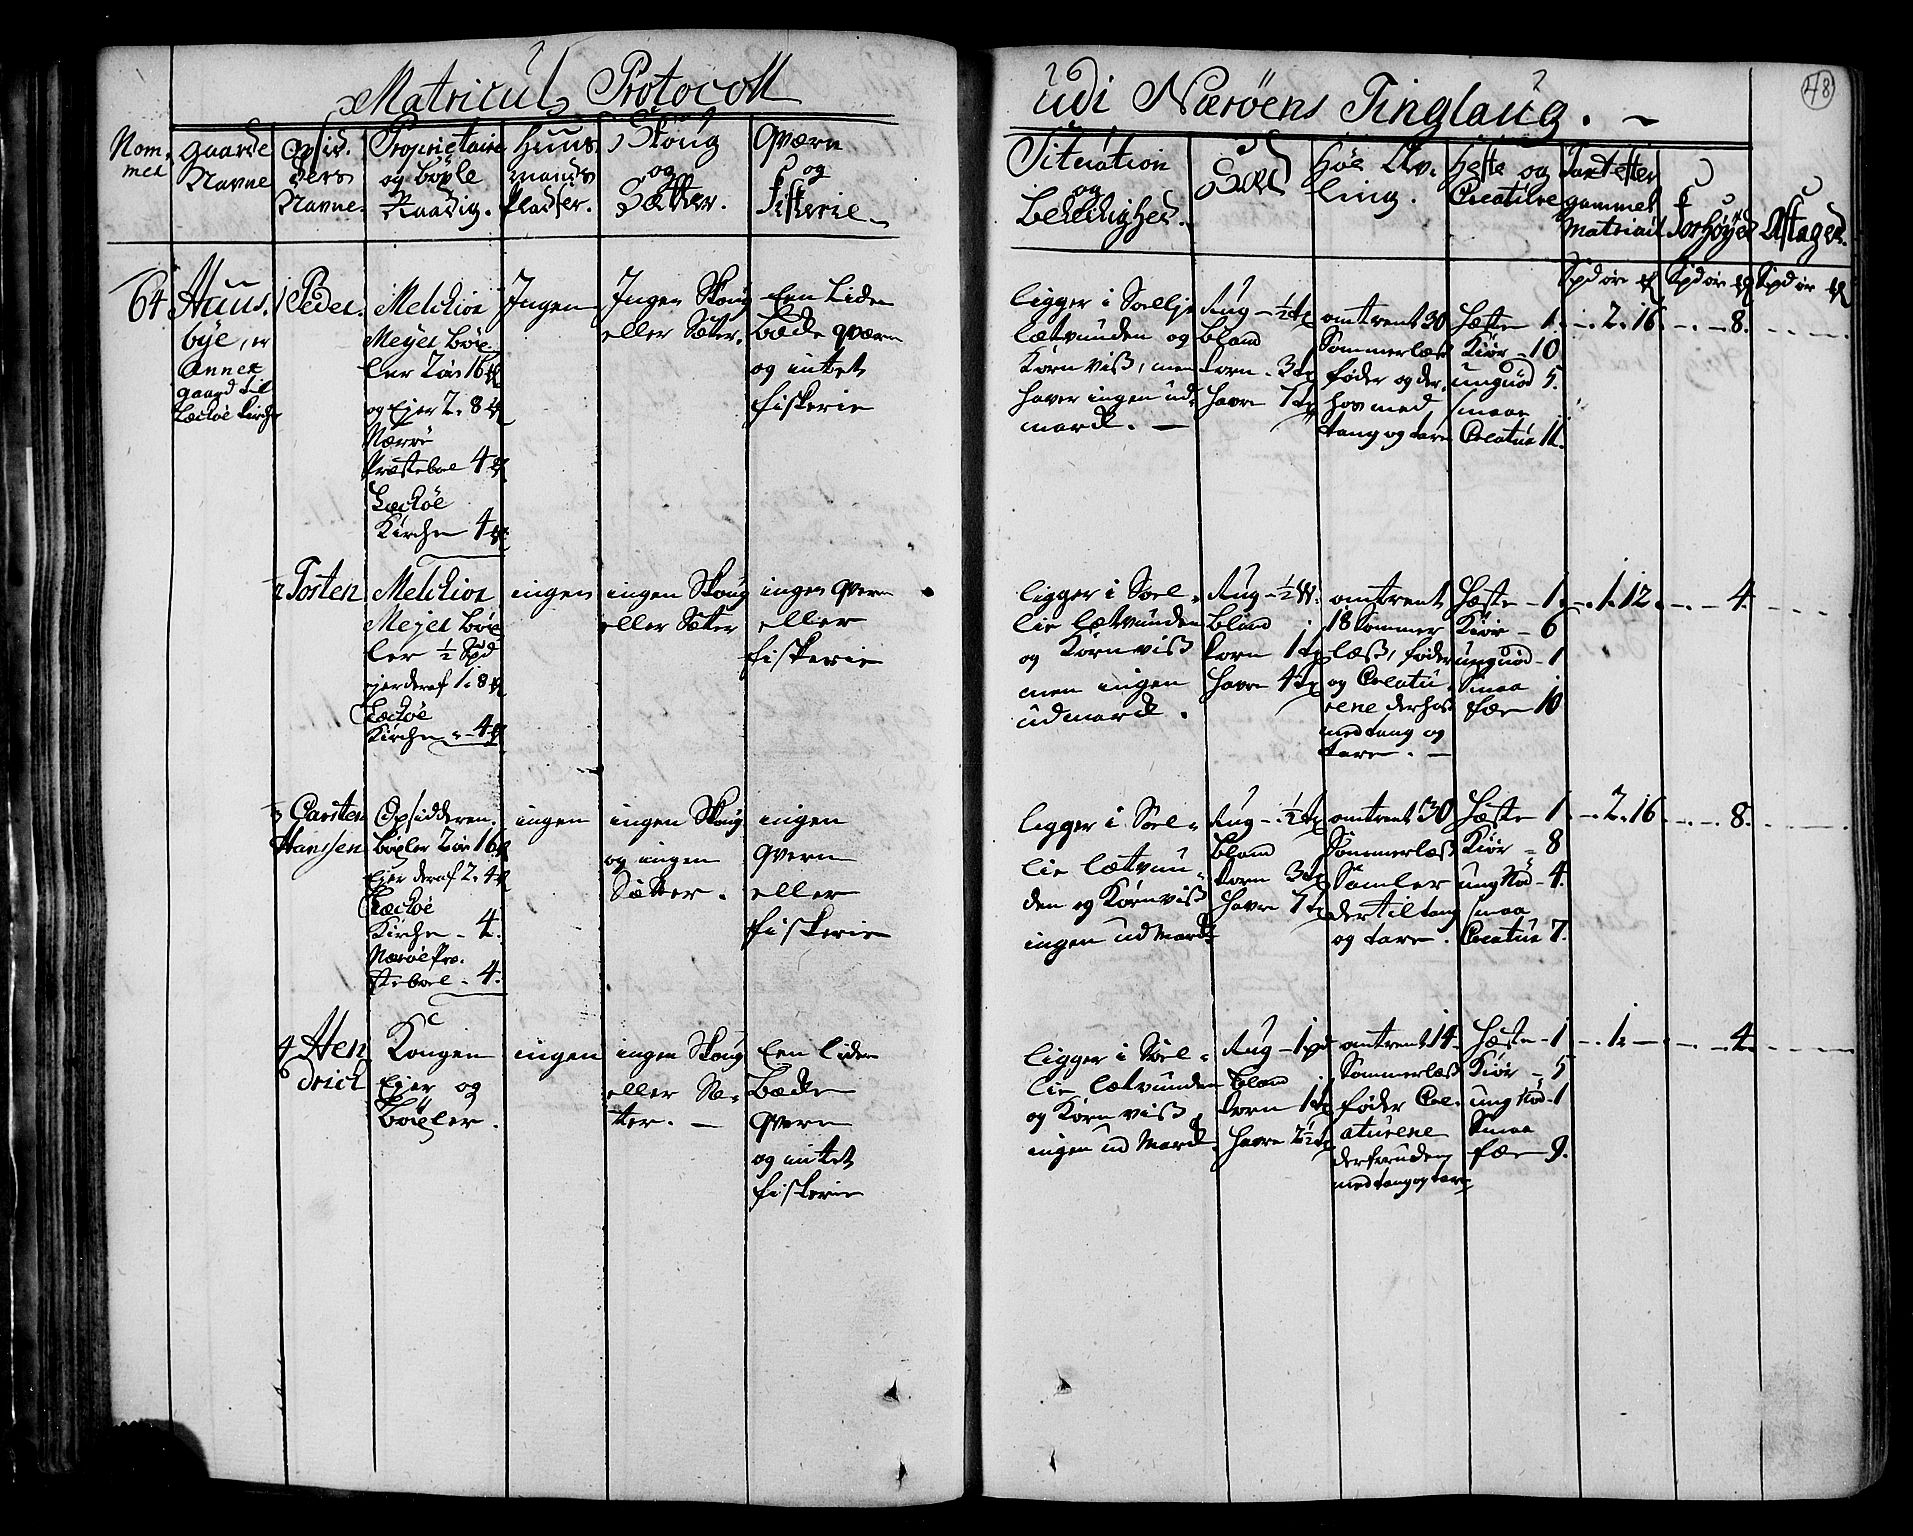 Matricul Protocoll
udi Nærøens Tinglaug.
48
Nom-
mer
Gaarde
Navne
Opsid-
ders
Navne.
Proprietairer
og böxle
Raadig.
Huus-
mands
Pladser.
Skoug
og
Sætter.
Qværn
og
Fiskerie
Situation
og
Beleilighed.
Sæd
Høe Av-
ling.
Heste og
Creature
Taxt efter
gammel
Matricul
Forhøyed
Aftaged.
Spd ør
Spd ør
Spd ør
64
Huus-
bye, er
Annex
gaard til
Leckøe Kirche
1 Peder
Melchior
Meyer böx
ler 2 ør 16
og Ejer 2. 8
Nærrö
Præsteboel 4
Leckøe
Kirche 4
Ingen
Ingen Skoug
eller Sæter.
Een Liden
Bæcke qværn
og intet
fiskerie
ligger i Soellje
lætvunden og
Korn viss, men
haver ingen ud-
march.
Rug - ½ t
Bland
korn - 3 t
havre 7 t
omtrent 30
Sommerlæss
føder og der-
hos med
tang og tare
Hæste 1
Kiør - 10
ungnød 5.
smaae
Creatur 11.
2. 16
8.
2 Torsten
Melchior
Meyer böx
ler ½ Spd
ejer deraf 1. 8
Leckøe
Kirche - 4
ingen
ingen Skoug
eller Sætter
ingen qvern
eller
fiskerie
ligger i Soel-
lie lætvunden
og Kornviss
men ingen
udmarck.
Rug - ½
Bland
korn 1 t
havre 4 t
omtrent
18 Sommer
læss, føder
og Creatu-
rene derhos
med tang og
tare.
Hæste - 1
Kiør - 6
ungnød - 1
Smaa
fæe 10
1. 12.
4.
3 Carsten
Hanssen
Opsidderen
böxler 2 ør 16
Ejer deraf 2. 4
Leckøe
Kirche - 4.
Nærøe Præ-
steboel - 4.
ingen
ingen Skoug
og ingen
Sætter.
ingen
qvern
eller
fiskerie
ligger i Soel-
lie lætvun-
den og Kornviss
ingen udmarck
Rug - ½ t
Bland
korn 3 t
havre 7 t
omtrent 30
Sommerlæss
Samler
der til tang
og tare.
Hæste 1
Kiør - 8
ung Nød - 4.
smaa
Creatur 7.
2. 16
8.
4 Hen
drich
Kongen
Ejer og
böxler.
ingen
ingen Skoug
eller Sæ-
tter.
Een liden
Bæcke
qvern
og intet
fiskerie
ligger i Soel-
lie lætvunden
og Kornviss,
ingen ud Marck
Rug - 1
Bland
korn 1 t
havre 2½ t
omtrent 14
Sommerlæss
føder Cre-
aturene
derforuden
med tang og tare
Hæste - 1
Kiør - 5
ung Nød - 1
Smaa
fæe 9.
1.
4.